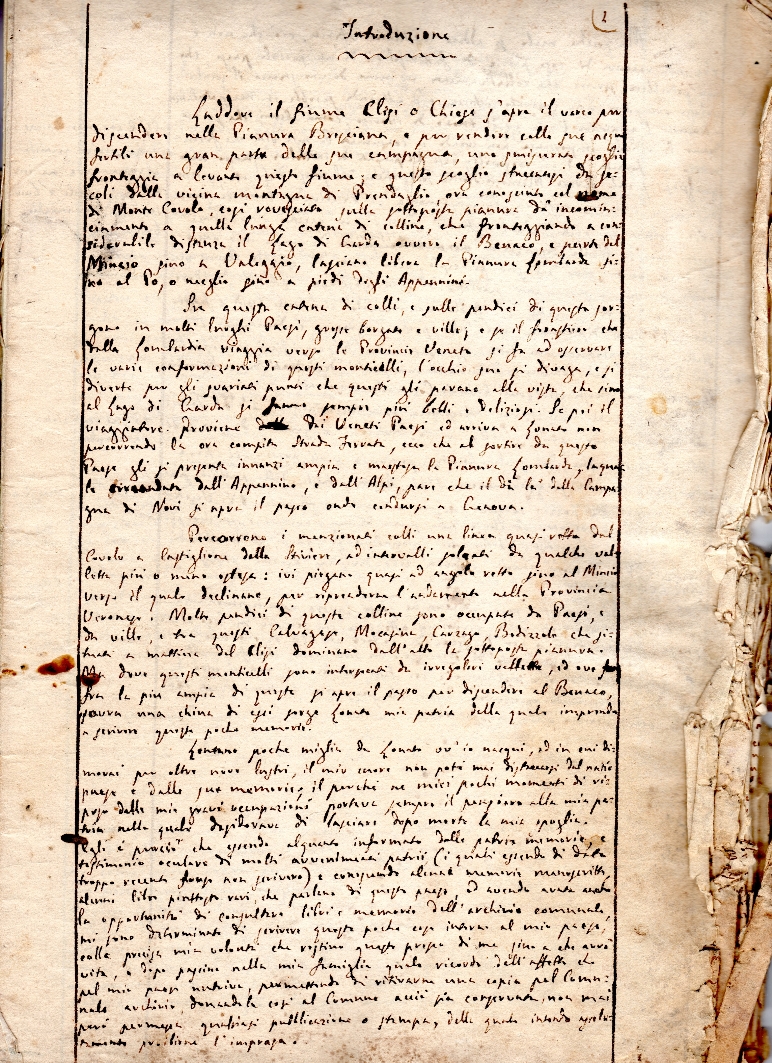 1
Introduzione
Laddove il fiume Clisi o Chiese s'apre il varco per
discendere nella Pianura Bresciana, e per rendere colle sue acque
fertili una gran parte delle sue campagne, uno smisurato scoglio
fronteggia a levante questo fiume; e questo scoglio staccasi da se-
coli dalla vicina montagna di Prendaglio, ora conosciuto col nome
di Monte Covolo, così rovesciato sulla sottoposta pianura dà incomin-
ciamento a quella lunga catena di colline, che fronteggiando a con-
siderabile distanza il Lago di Garda ovvero il Benaco, e parte del
Mincio sino a Valeggio, lasciano libera la Pianura Lombarda si-
no al Po, o meglio sino a piedi degli Appennini.
Su questa catena di colli, e sulle pendici di questa sor-
gono in molti luoghi Paesi, grosse borgate e ville; e se il forastiere che
dalla Lombardia viaggia verso le Provincie Venete si fa ad osservare
le varie conformazioni di questi monticelli, l'occhio suo si divaga, e si
diverte per gli svariati punti che questi gli parano alla vista, che sino
al Lago di Garda si fanno sempre più belli e deliziosi. Se poi il
viaggiatore proviene dai Veneti Paesi ed arriva a Lonato non
percorrendo la ora compita Strada Ferrata, ecco che al sortire da questo
Paese gli si presenta innanzi ampia e maestosa la Pianura Lombarda, laqua-
le circondata dall'Appennino, e dall'Alpi, pare che il dì là della Campa-
gna di Novi si apre il passo onde condursi a Genova.
Percorrono i menzionati colli una linea quasi retta dal
Covolo a Castiglione delle Stiviere, ad intervalli solcati da qualche val-
letta più o meno estesa: ivi piegano quasi ad angolo retto sino al Mincio
verso il quale declinano, per riprenderne l'andamento nella Provincia
Veronese. Molte pendici di queste colline sono occupate da Paesi, e
da ville, e tra questi Calvagese, Mocasina, Carzago, Bedizzole che si-
tuati a mattina del Clisi dominano dall'alto la sottoposta pianura.
Ma dove questi monticelli sono intersecati da irregolari vallette, ed ove
fra la più ampia di queste si apre il passo per discendere al Benaco,
sovra una china di essi sorge Lonato mia patria della quale imprendo
a scrivere queste poche memorie.
Lontano poche miglia da Lonato ov'io nacqui, ed in cui di-
morai per oltre nove lustri, il mio cuore non poté mai distaccarsi dal natio
paese e dalle sue memorie, il perché ne miei pochi momenti di ri-
poso dalle mie gravi occupazioni portava sempre il pensiero alla mia pa-
tria nella quale desiderava di lasciare dopo morte la mia spoglia.
Egli è perciò che essendo alquanto informato delle patrie memorie, e
testimonio oculare di molti avvenimenti patrii (i quali essendo di data
troppo recente forse non scriverò) e conoscendo alcune memorie manoscritte,
alcuni libri piuttosto rari, che parlano di questo paese, ed avendo avuta anche
la opportunità di consultare libri e memorie dell'archivio comunale,
mi sono determinato di scrivere queste poche cose intorno al mio paese,
colla precisa mia volontà che restino queste presso di me sino a che avrò
vita, e dopo passino nella mia famiglia quale ricordo dell'affetto che
pel mio paese nutriva, permettendo di ritirarne una copia pel Comu-
nale archivio domandata così al Comune acciò sia conservata, non mai
però permessa qualsiasi pubblicazione o stampa, della quale intendo assolu-
tamente proibirne l'impresa.